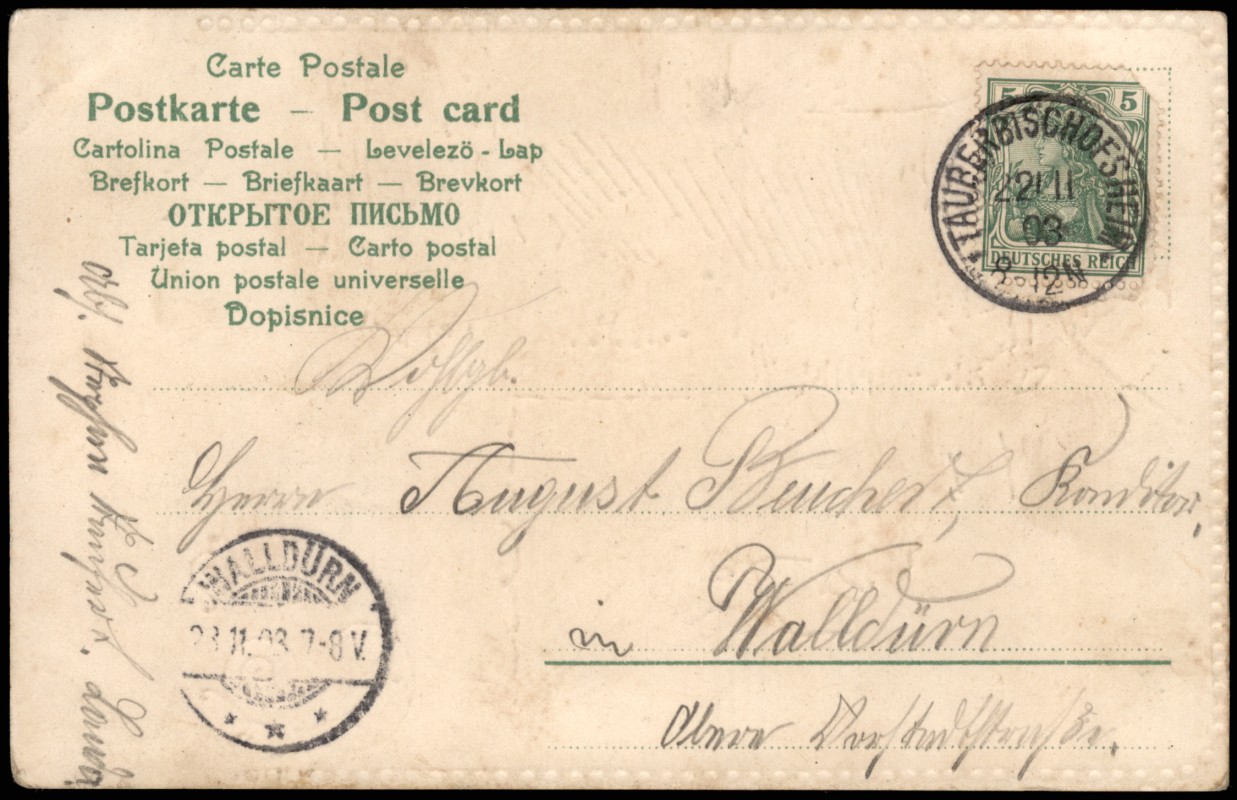 Carte Postale
Postkarte — Post card
Cartolina Postale — Levelezö-Lap
Brefkort — Briefkaart — Brevkort
ОТКРЫТОЕ ПИСЬМО
Tarjeta postal — Carto postal
Union postale universelle
Dopisnice
5 5
DEUTSCHES REICH
TAUBERBISCHOFSHEIM
22/11
03
8-12N
Wohlgb.
Herrn August Beuchert, Konditor,
in Walldürn
Obere Vorstadtstraße.
WALLDÜRN
23.11.03.7-8V.
Abs.